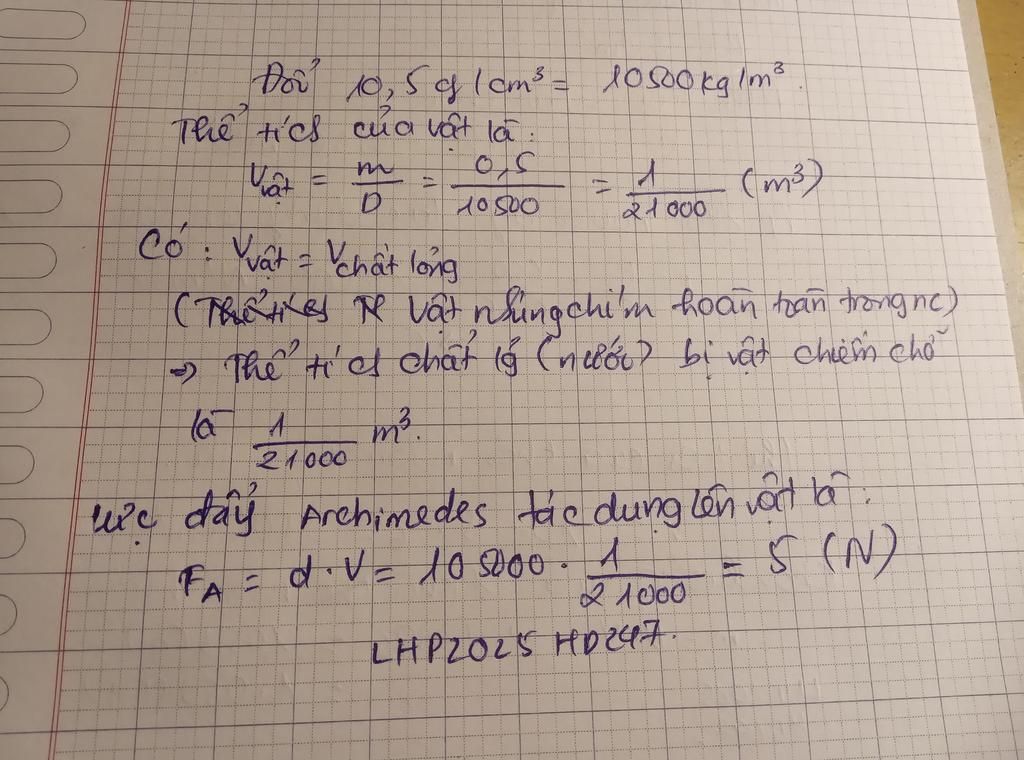 Đổi 10,5 g/cm³ = 10500kg/m³.
Thể tích của vật là:
Vvật = m/D = 0,5/10500 = 1/21000 (m³)
Có: Vvật = Vchất lỏng
(Vật nhúng chìm hoàn toàn trong nc)
=> Thể tích chất lg (nước) bị vật chiếm chỗ
là 1/21000 m³.
Lực đẩy Archimedes tác dụng lên vật là:
FA = d . V = 105000 . 1/21000 = 5 (N)
LHP2025 HD247.